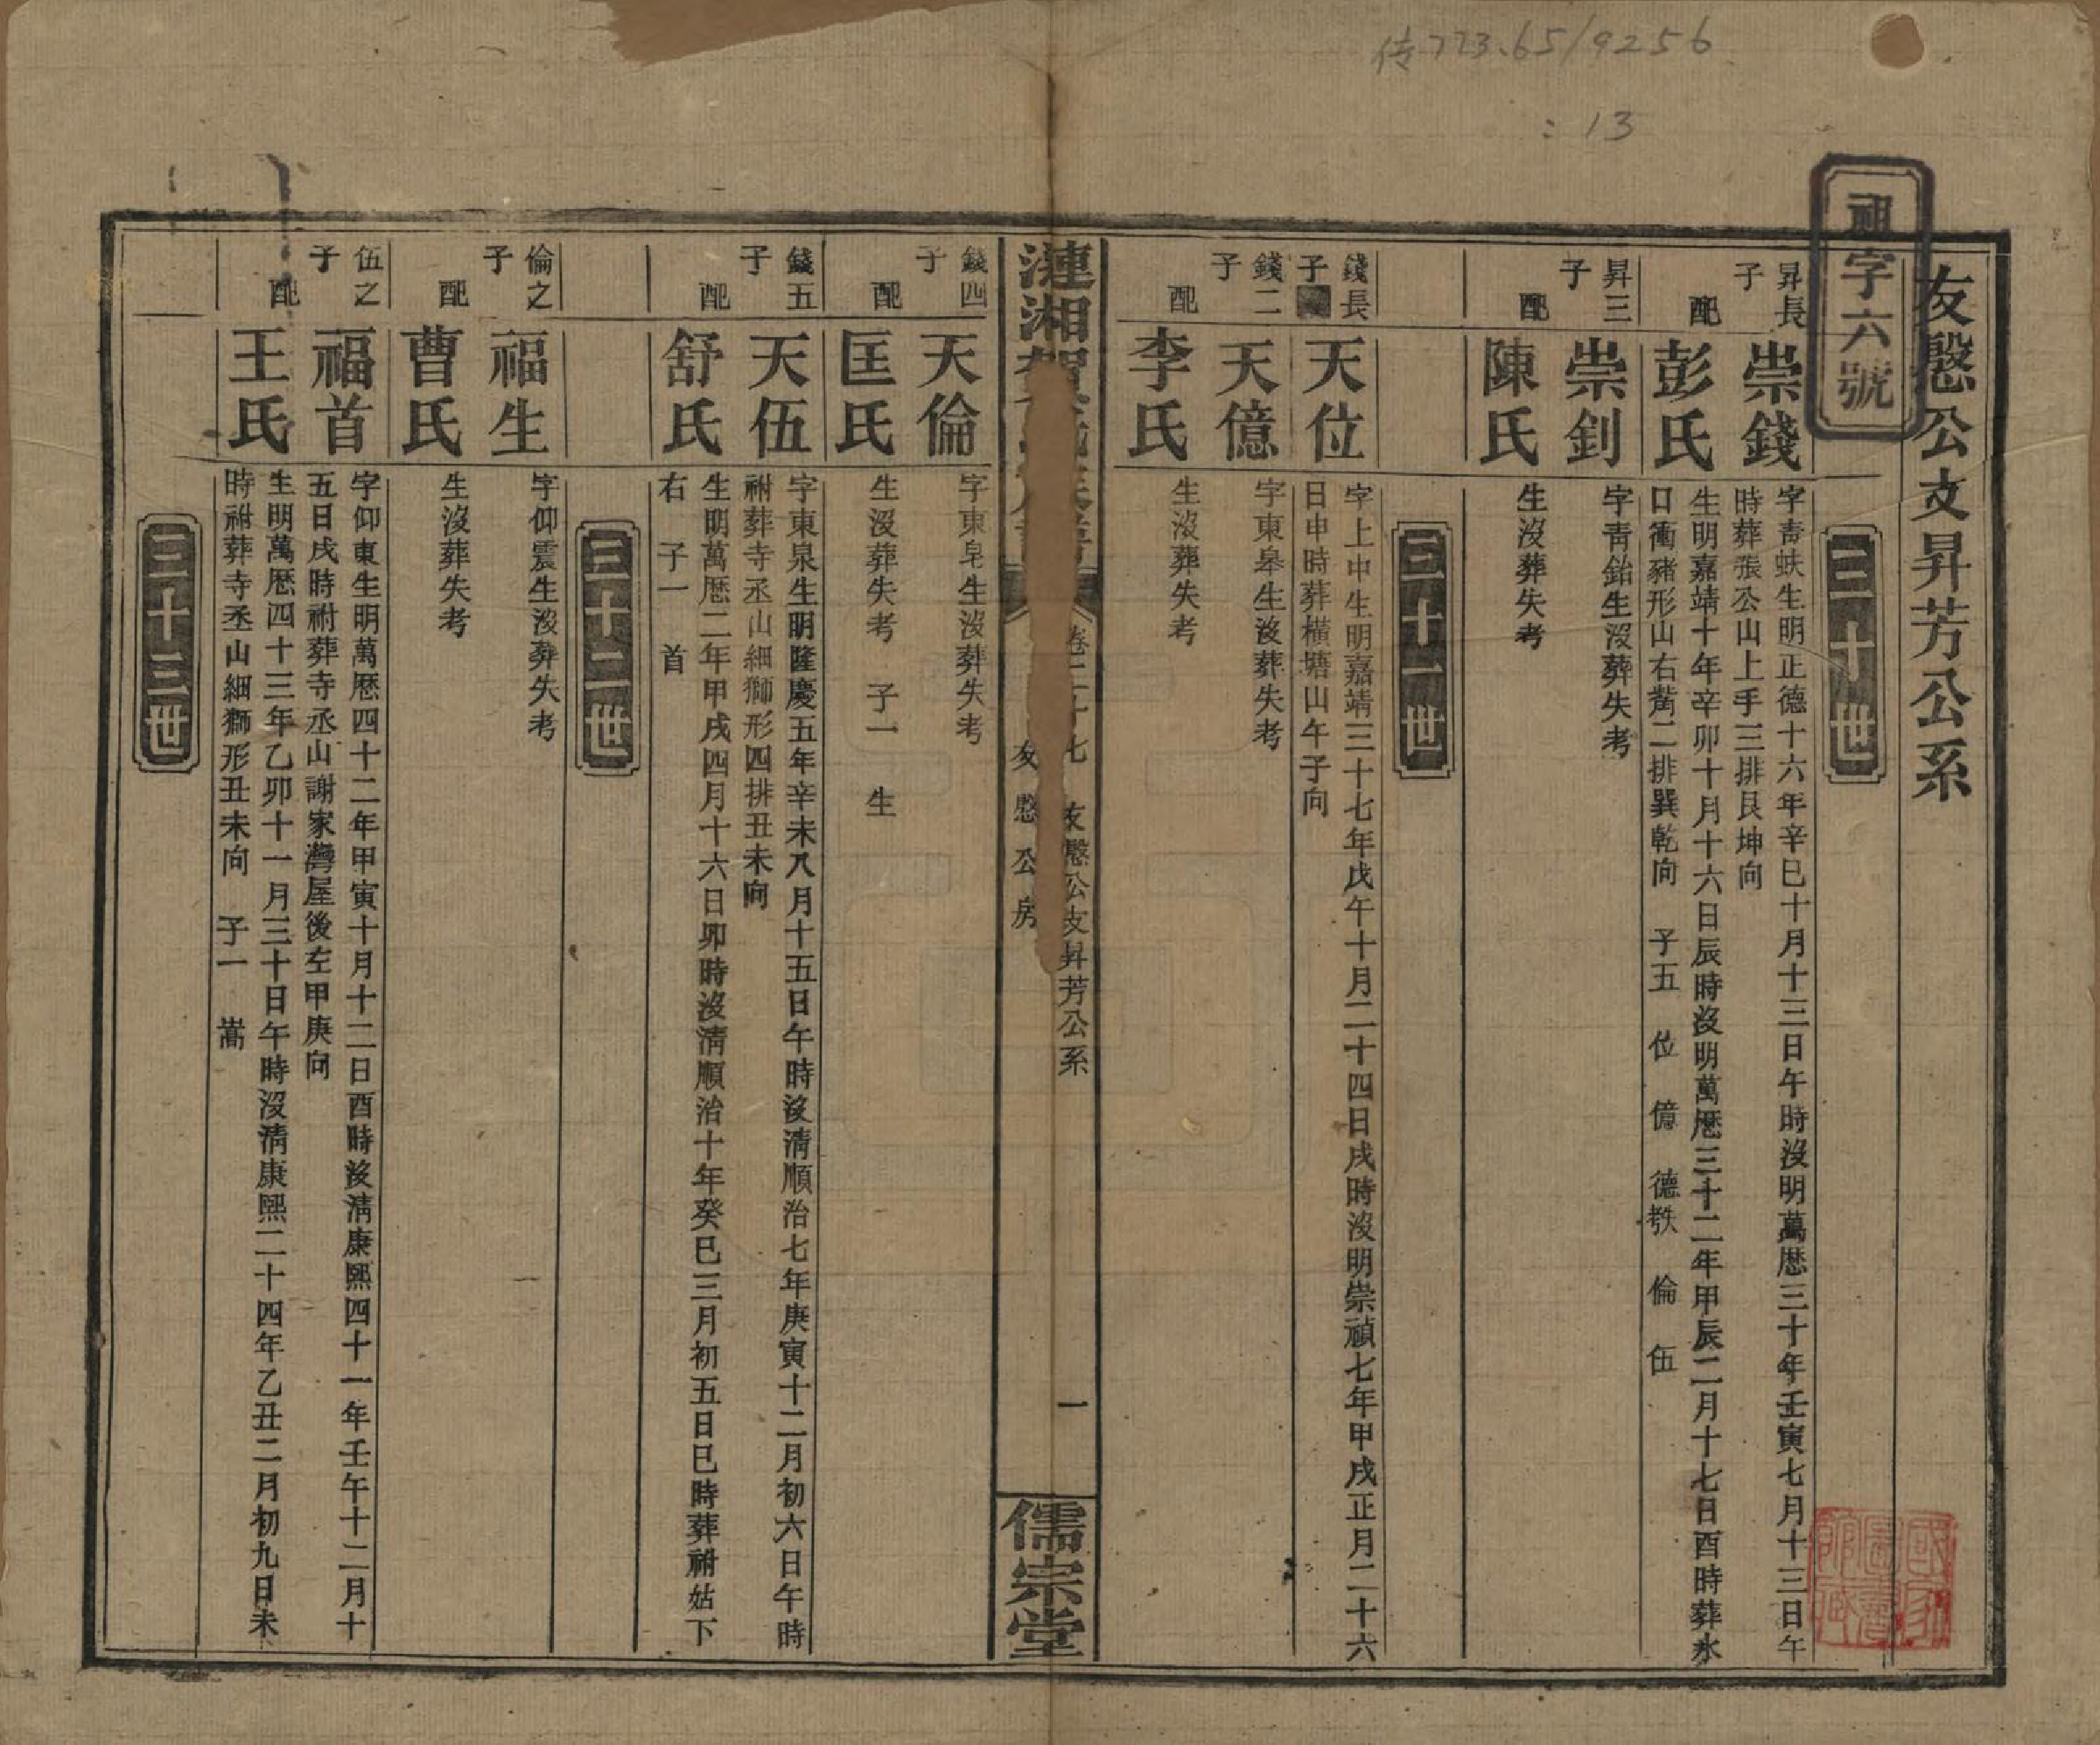 传773.65/9256
:13
祖字六號
友慇公支昇芳公系
三十世
昇長子 崇錢 字靑蚨生明正德十六年辛巳十月十三日午時沒明萬厯三十年壬寅七月十三日午
時葬張公山上手三排艮坤向
配 彭氏 生明嘉靖十年辛卯十月十六日辰時沒明萬厯三十二年甲辰二月十七日酉時葬水
口衝豬形山右觜二排巽乾向 子五 位 億 德 倫 伍
昇三子 崇釗 字靑鈶生沒葬失考
配 陳氏 生沒葬失考
三十一世
錢長子 天位 字上中生明嘉靖三十七年戊午十月二十四日戌時沒明崇禎七年甲戌正月二十六
日申時葬橫塘山午子向
錢二子 天億 字東皋生沒葬失考
配 李氏 生沒葬失考
漣湘賀
卷二十七 友慇公支昇芳公系
友慇公房
一
儒宗堂
錢四子 天倫 字東皂生沒葬失考
配 匡氏 生沒葬失考 子一 生
錢五子 天伍 字東泉生明隆慶五年辛未八月十五日午時沒清順治七年庚寅十二月初六日午時
祔葬寺丞山細獅形四排丑未向
配 舒氏 生明萬厯二年甲戌四月十六日卯時沒清順治十年癸巳三月初五日巳時葬祔姑下
右 子一 首
三十二世
倫之子 福生 字仰震生沒葬失考
配 曹氏 生沒葬失考
伍之子 福首 字仰東生明萬厯四十二年甲寅十月十二日酉時沒清康熙四十一年壬午十二月十
五日戌時祔葬寺丞山謝家灣屋後左甲庚向
配 王氏 生明萬厯四十三年乙卯十一月三十日午時沒清康熙二十四年乙丑二月初九日未
時祔葬寺丞山細獅形丑未向 子一 嵩
三十三世